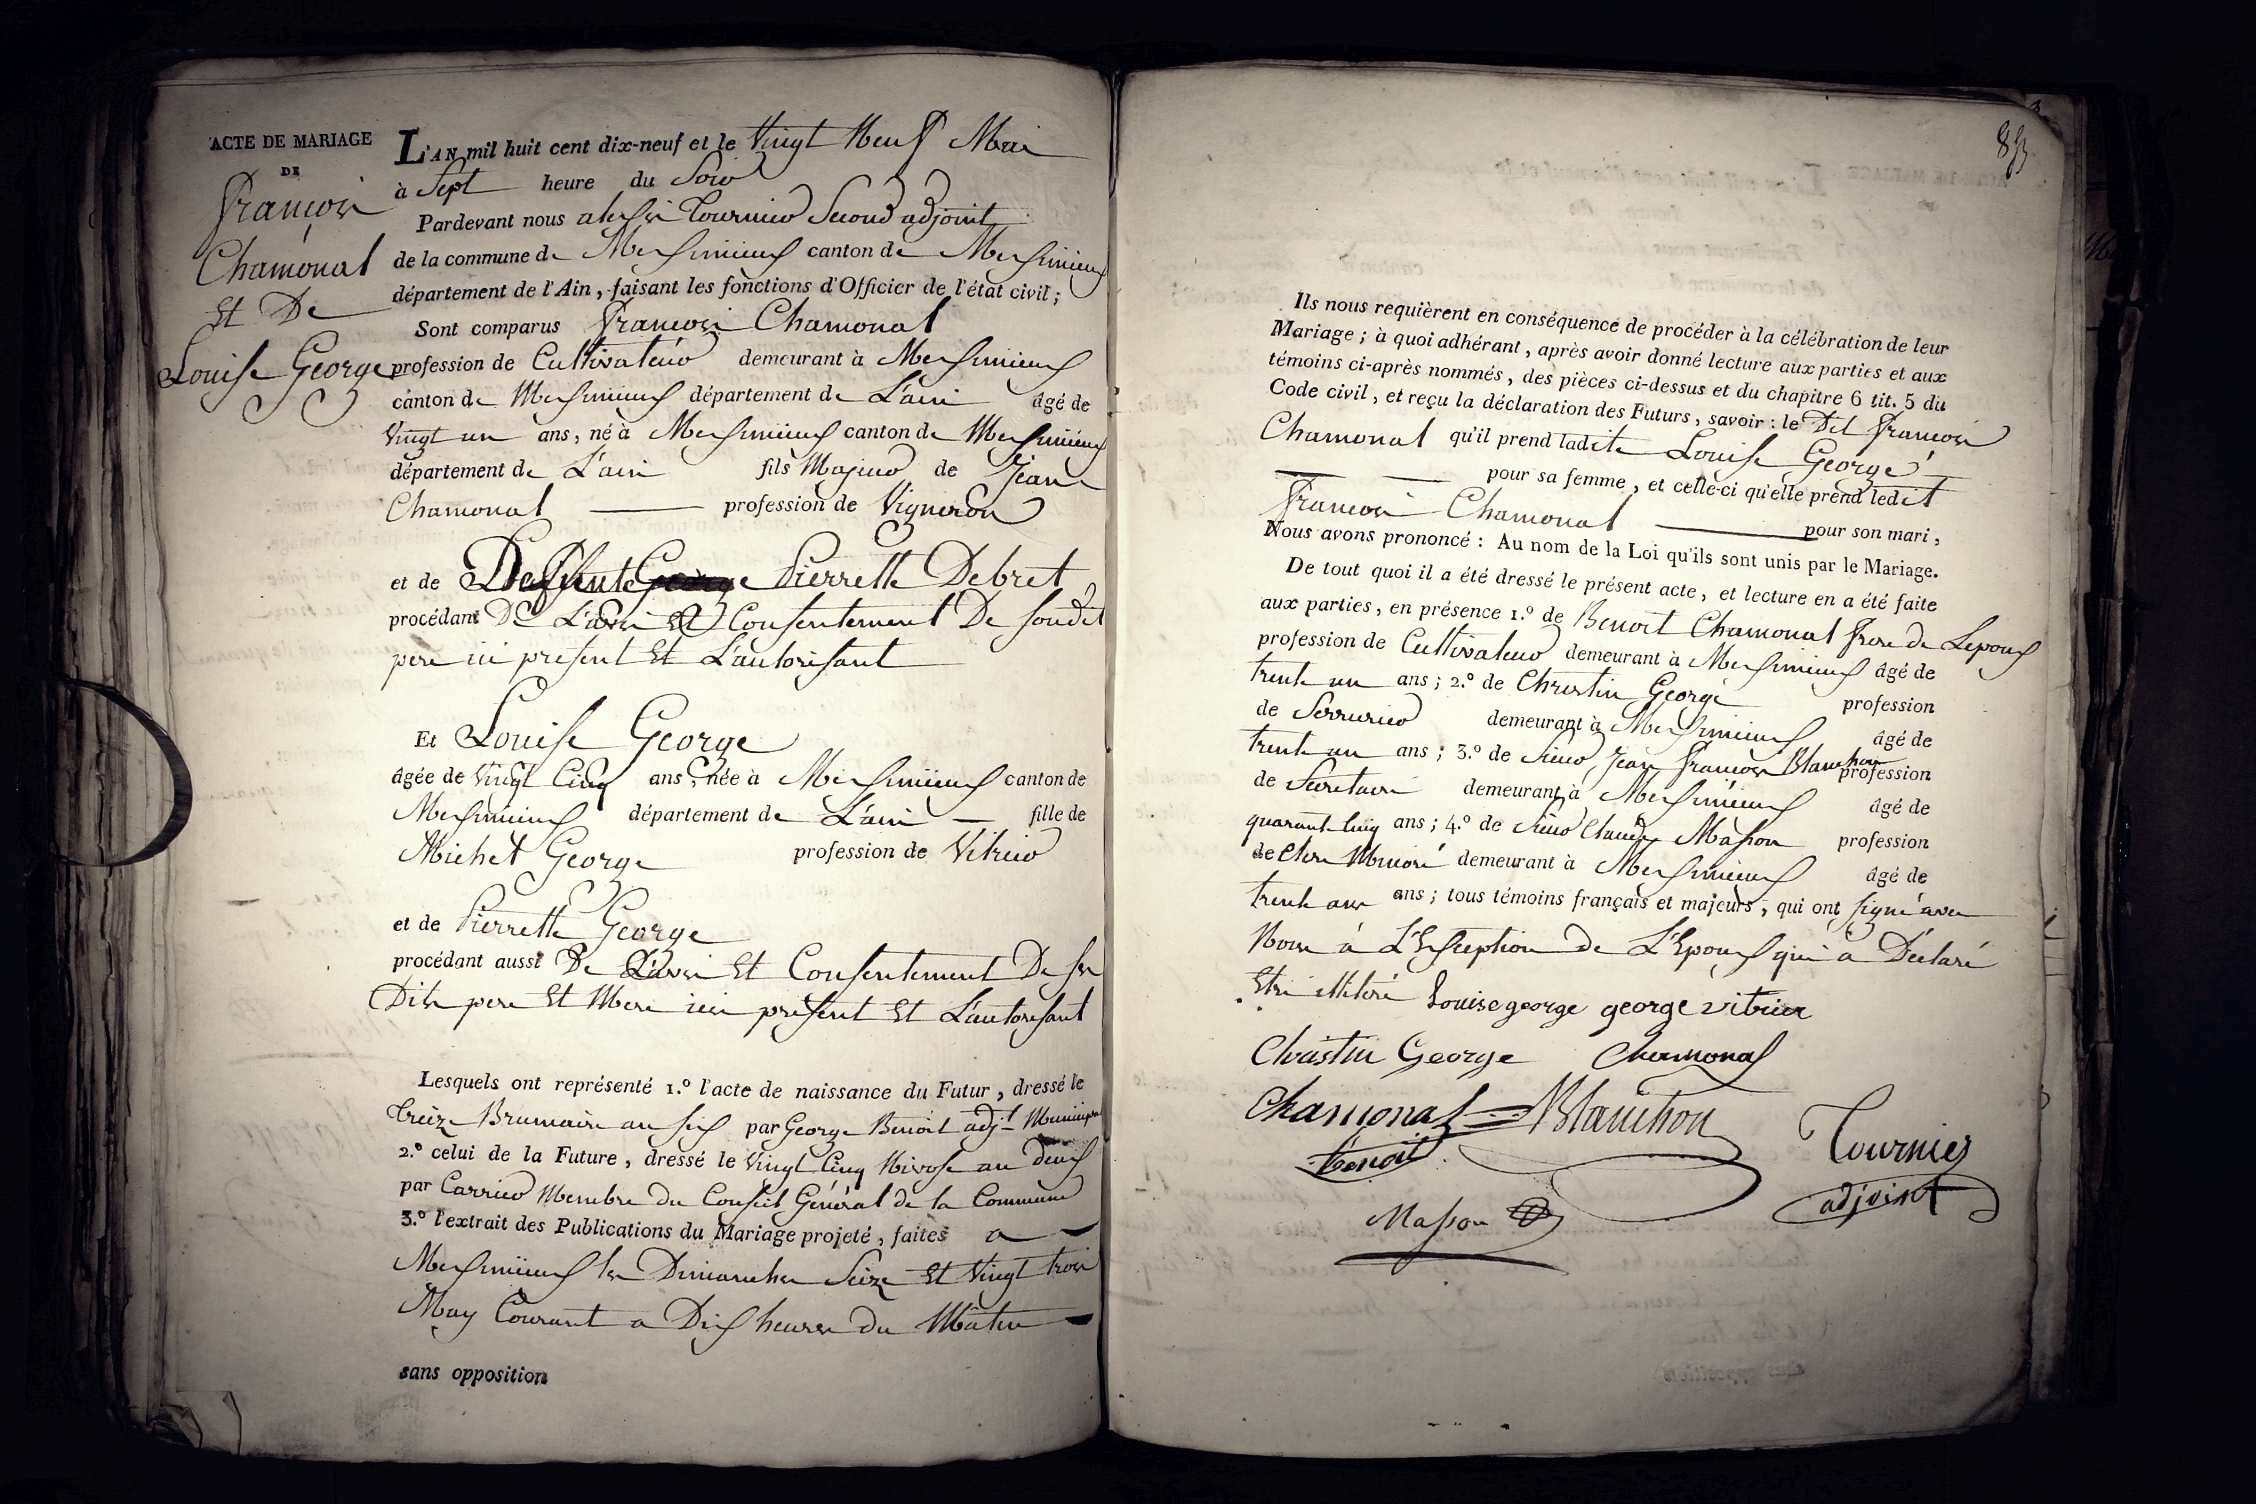 ACTE DE MARIAGE
DE
François
Chamonal
Et De
Louise George
L'AN mil huit cent dix-neuf et le Vingt Neuf Mai
à Sept heure du Soir
Pardevant nous Tournier Second adjoint
de la commune de Meximieux canton de Meximieux
département de l'Ain, faisant les fonctions d'Officier de l'état civil;
Sont comparus François Chamonal
profession de Cultivateur demeurant à Meximieux
canton de Meximieux département de L'ain âgé de
Vingt un ans, né à Meximieux canton de Meximieux
département de L'ain fils Majeur de Jean
Chamonal profession de Vigneron
et de Deffunte Pierrette Debret
procédant De L'avis Et Consentement De sondit
pere ici présent Et L'autorisant
Et Louise George
âgée de Vingt Cinq ans, née à Meximieux canton de
Meximieux département de L'ain fille de
Michel George profession de Vitrier
et de Pierrette George
procédant aussi De L'avis Et Consentement De ses
Dits pere Et Mere ici présent Et L'autorisant
Lesquels ont représenté 1.º l'acte de naissance du Futur, dressé le
treize Brumaire an six par George Benoit adj.t Municipal
2.º celui de la Future, dressé le Vingt Cinq Nivose an deux
par Carrier Membre du Conseil Général de la Commune
3.º l'extrait des Publications du Mariage projeté, faites a
Meximieux les Dimanches Seize Et Vingt trois
May Courant a Dix heures du Matin
sans opposition
Ils nous requièrent en conséquence de procéder à la célébration de leur
Mariage; à quoi adhérant, après avoir donné lecture aux parties et aux
témoins ci-après nommés, des pièces ci-dessus et du chapitre 6 tit. 5 du
Code civil, et reçu la déclaration des Futurs, savoir: le Dit François
Chamonal qu'il prend ladite Louise George
pour sa femme, et celle-ci qu'elle prend ledit
François Chamonal pour son mari,
Nous avons prononcé: Au nom de la Loi qu'ils sont unis par le Mariage.
De tout quoi il a été dressé le présent acte, et lecture en a été faite
aux parties, en présence 1.º de Benoit Chamonal frere de Lepoux
profession de Cultivateur demeurant à Meximieux âgé de
trente un ans; 2.º de Christin George profession
de Serrurier demeurant à Meximieux âgé de
trente un ans; 3.º de Sieur Jean François Blanchon profession
de Secretaire demeurant à Meximieux âgé de
quarante cinq ans; 4.º de Sieur Claude Masson profession
de Clerc Minoré demeurant à Meximieux âgé de
trente ans ans; tous témoins français et majeurs, qui ont signé avec
Nous à L'Exception de L'Epoux qui a Déclaré
Etre illitéré Louise george george vitrier
Christin George Chamonal
Chamonal Blanchon
Benoit Tournier
adjoint
Masson